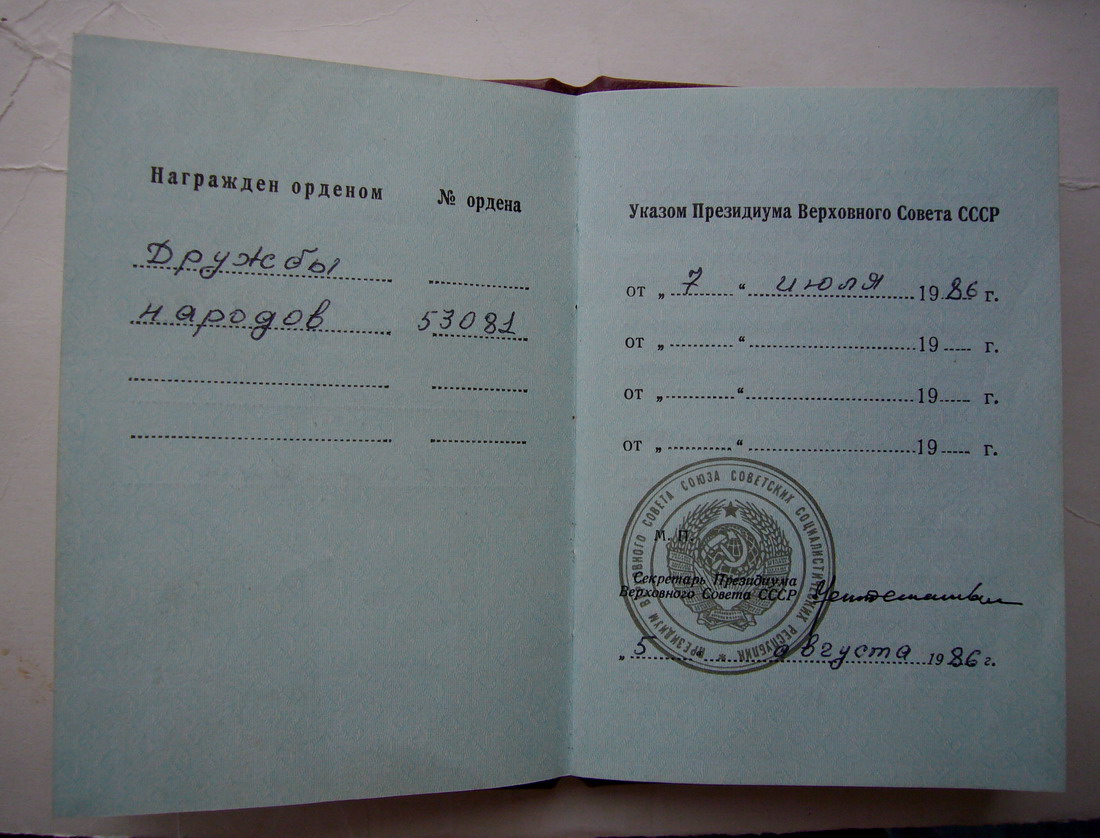 Награжден орденом № ордена
Дружбы
народов 53081
Указом Президиума Верховного Совета СССР
от „ 7 “ июля 1986 г.
от „ “ 19 г.
от „ “ 19 г.
от „ “ 19 г.
ПРЕЗИДИУМ ВЕРХОВНОГО СОВЕТА СОЮЗА СОВЕТСКИХ СОЦИАЛИСТИЧЕСКИХ РЕСПУБЛИК
М. П.
Секретарь Президиума
Верховного Совета СССР
„ 5 “ августа 1986 г.